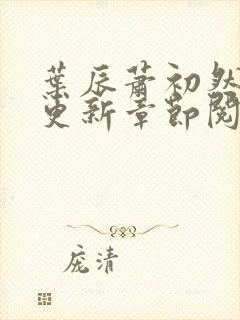 葉辰蕭初然
更新章節閱
庞清